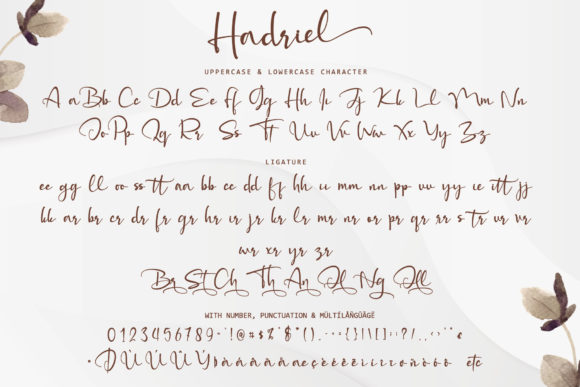 Hadriel
UPPERCASE & LOWERCASE CHARACTER
A a Bb Cc Dd Ee Ff Gg Hh Ii Jj Kk Ll Mm Nn
Oo Pp Qq Rr Ss Tt Uu Vv Ww Xx Yy Zz
LIGATURE
ee gg ll oo ss tt aa bb cc dd ff hh ii mm nn pp uu yy ie itt jj
kk ar br cr dr fr gr hr ir jr kr lr mr nr or pr qr rr s tr ur vr
wr xr yr zr
Br St Ch Th An Ng
WITH NUMBER, PUNCTUATION & MÙLTÍLÂÑGÛÃGË
0123456789
etc